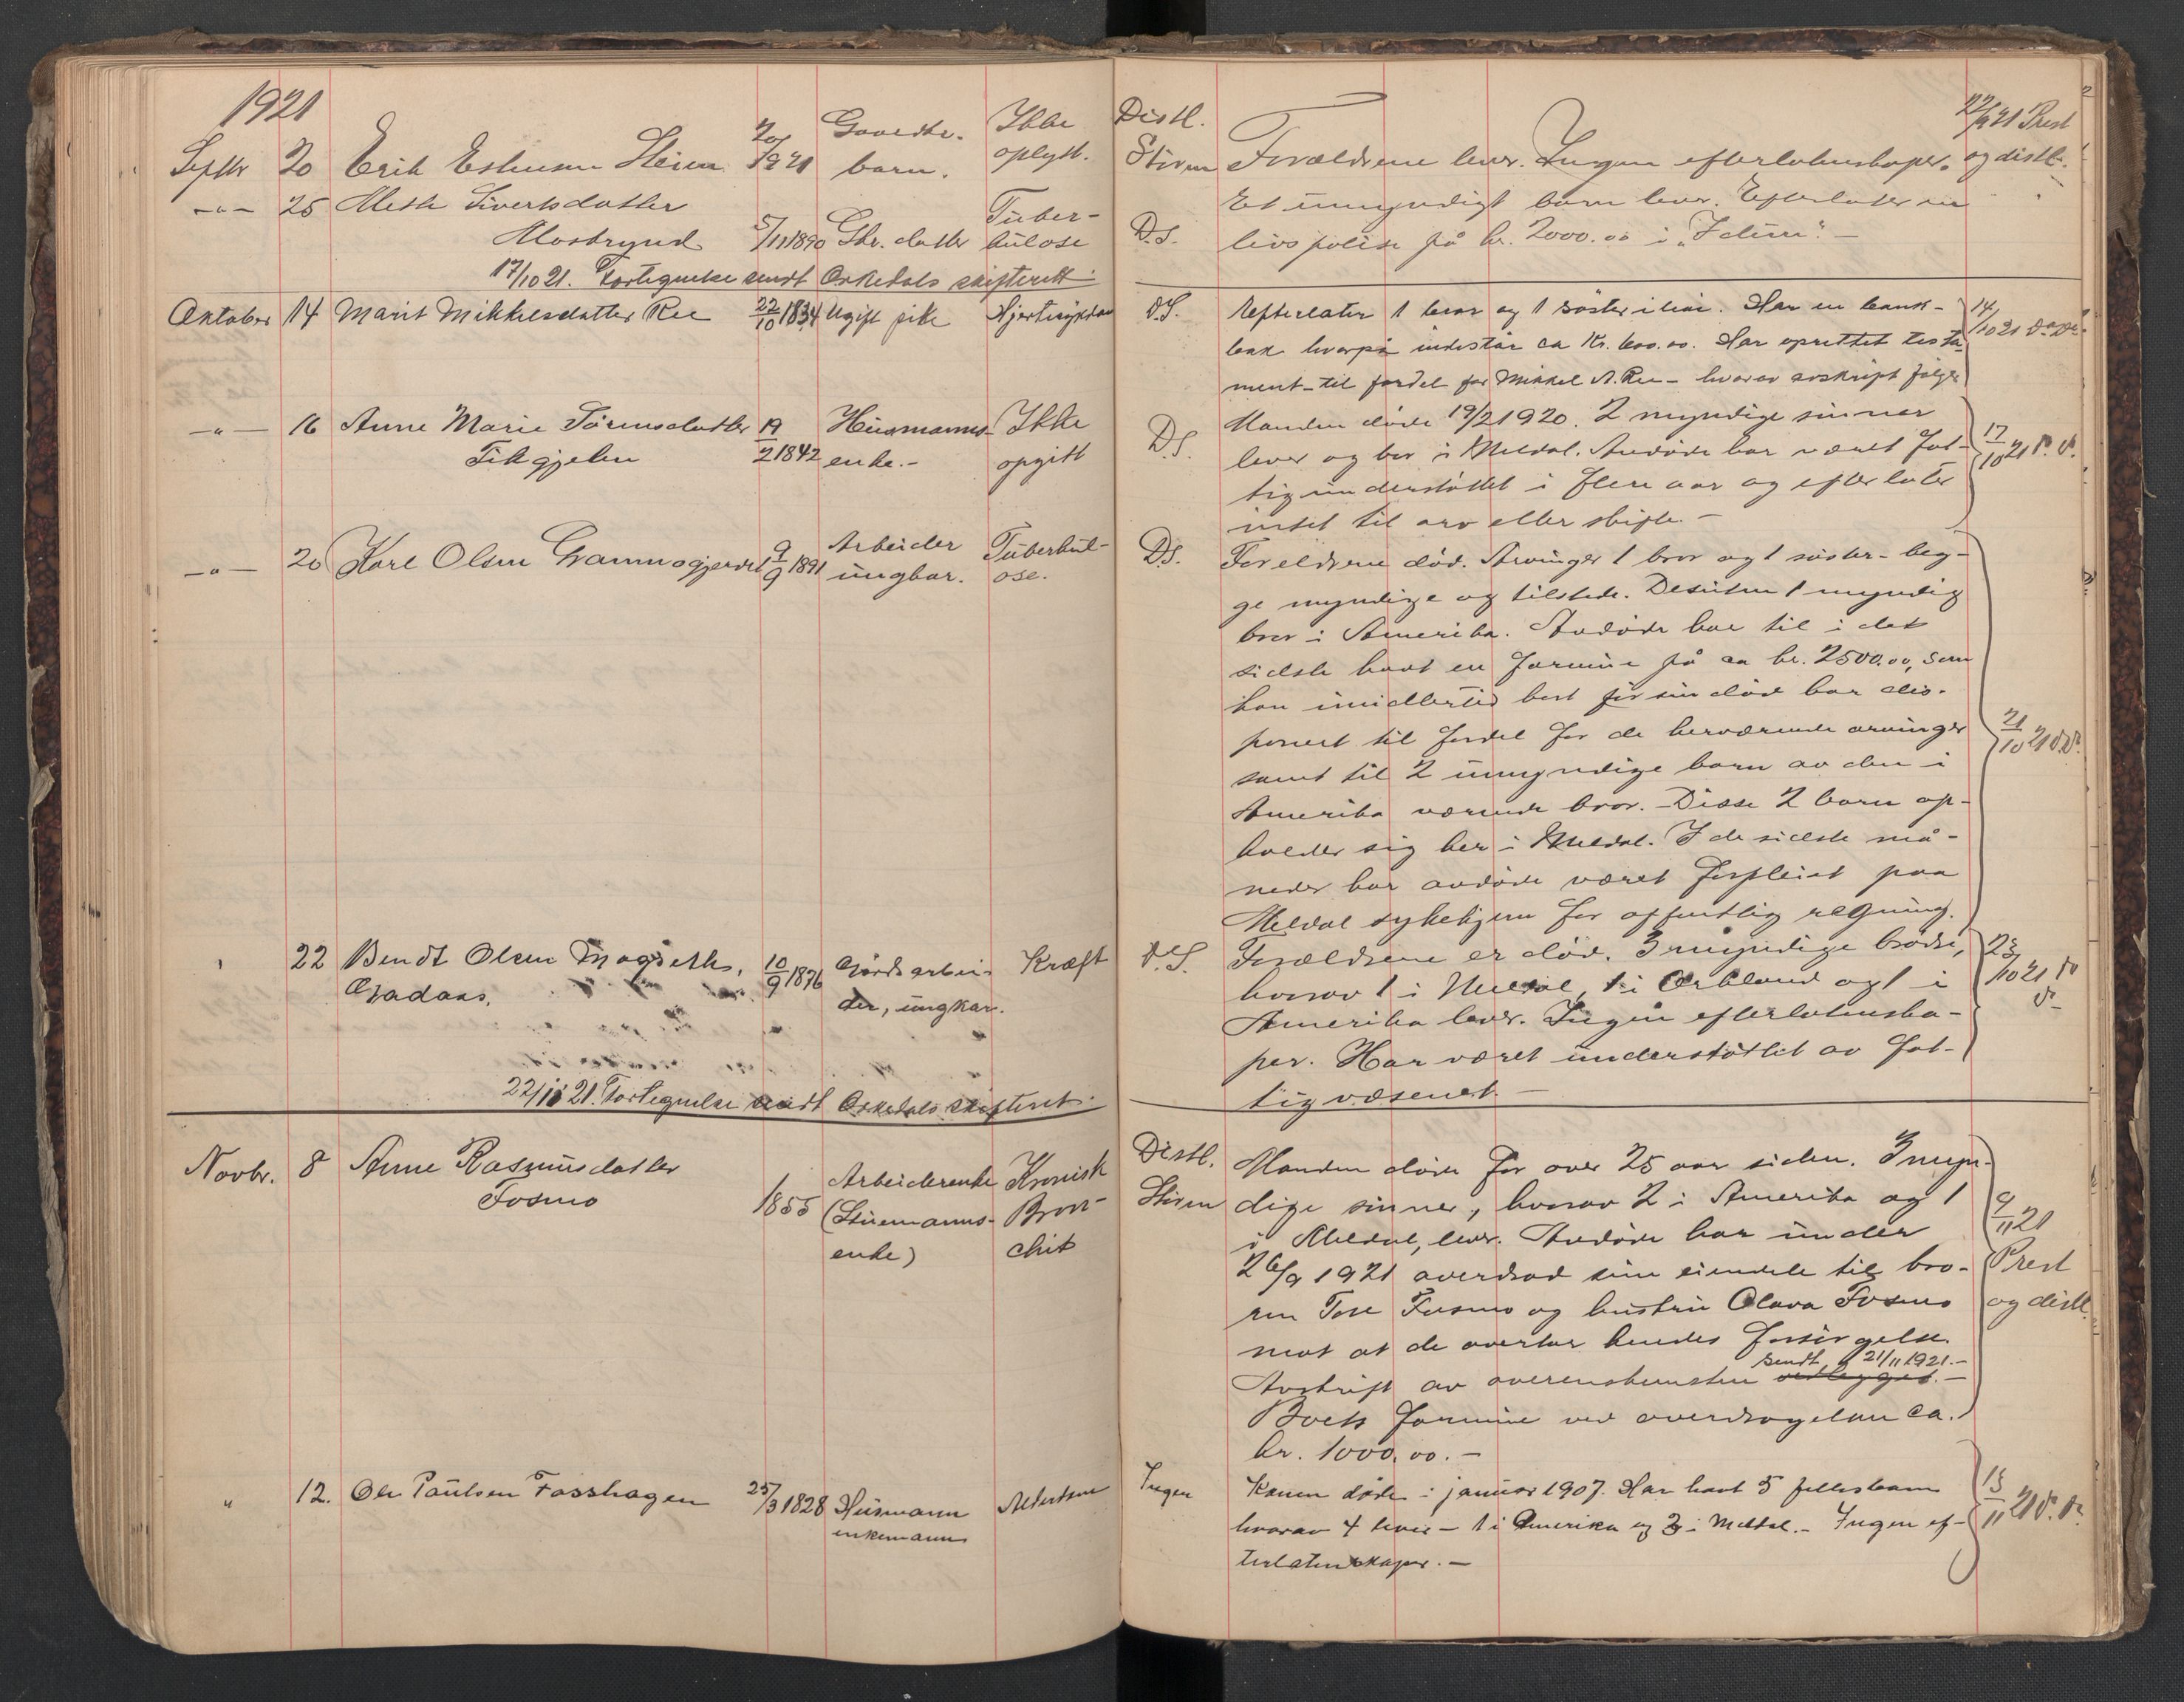 1921
Septbr 20 Erik Estensen Steien 20/9 1921 Gaardbr. barn. Ikke oplyst.
-"- 25 Meth Sivertsdatter
Mosbrynd 5/11 1890 Gbr. datter Tuber-
kulose
17/10 21. Fortegnelse sendt Orkedals skifterett.
Oktober 14 Marit Mikkelsdatter Ree 22/10 1834 Ugift pike Hjertesykdom
-"- 16 Anne Marie Sørensdatter 19/2 1842 Husmanns- Ikke
enke.- opgitt
-"- 20 Karl Olsen 9/9 1891 Arbeider Tuberkul-
ungkar. ose.
22 Bendt Olsen 10/9 1876 Gårdsarbei- Kræft
der, ungkar.
22/10 21. Fortegnelse sendt Orkedals skifteret.
Novbr. 8 Anne Rasmusdatter
Fosmo 1855 Arbeiderenke Kronisk
(Stuemanns- Bron-
enke) chit
" 12. Ole Paulsen Fosshagen 25/3 1828 Husmann Alderdom
enkemann
Distl.
Stiren Forældrene lever. Ingen efterlatenskaper. 22/9 21 Prest og distl.
Et umyndigt barn lever. Efterlater en
D.S. livspolise på kr. 2000.00 i "Idun". -
D.S. Efterlater 1 bror og 1 søster i live. Har en bank- 14/10 21 Do. Do.
bok hvorpå indestår ca Kr. 600.00. Har oprettet testa-
ment til fordel for Mikkel A. Ree - hvorav avskript følger
D.S. Manden døde 19/2 1920. 2 myndige sønner
lever og bor i Meldal. Avdøde har været fat- 17/10 21 D. D.
tigunderstøttet i flere aar og efterlater
intet til arv eller skifte. -
D.S. Foreldrene død. Arvinger 1 bror og 1 søster - beg-
ge myndige og tilstede. Desuten 1 myndig
bror i Amerika. Avdøde har til i det
sidste havt en formue på ca kr. 2500.00, som
han imidlertid kort før sin død har dis-
poneret til fordel for de herværende arvinger 21/10 21 D.D.
samt til 2 umyndige barn av den i
Amerika værende bror. - Disse 2 barn op-
holder sig her i Meldal. I de sidste må-
neder har avdøde været forpleiet paa
Meldal sykehjem for offentlig regning.
D.S. Forældrene er død. 3 myndige brødre, 23/10 21 D
hvorav 1 i Meldal, 1 i Orkland og 1 i D.
Amerika lever. Ingen efterlatenska-
per. Har været understøttet av fat-
tigvæsenet. -
Distl. Manden døde for over 25 aar siden. 3 myn-
Stiren dige sønner, hvorav 2 i Amerika og 1 9/11 21
i Meldal, lever. Avdøde har under
26/9 1921 overdrad sine eiendele til bro- Prest
ren Tore Fosmo og hustru Olava Fosmo og distl.
mot at de overtar hendes forsørgelse.
sendt 21/11 1921. -
Avskrift av overenskomsten vedlegges. -
Boets formue ved overdragelsen ca.
kr. 1000.00. -
Ingen Konen døde i januar 1907. Har havt 5 fellesbarn 13/11 21 D. D.
hvorav 4 lever - 1 i Amerika og 3 i Meldal. - Ingen ef-
terlatenskaper. -